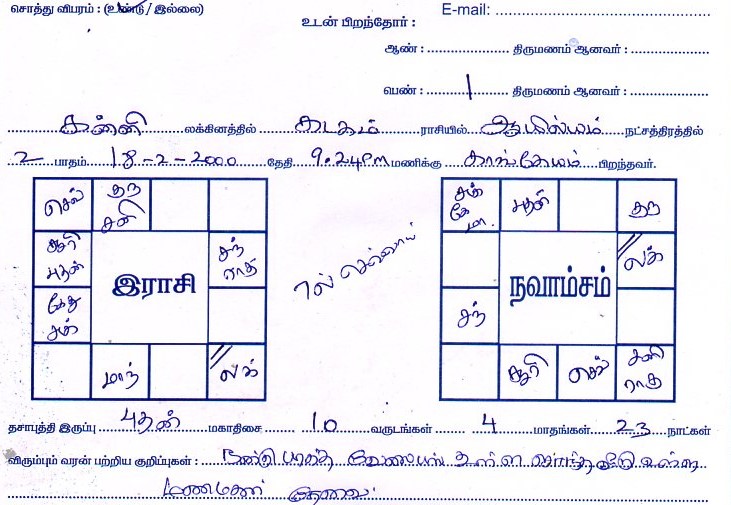 சொத்து விபரம் : (உண்டு / இல்லை)
E-mail:
உடன் பிறந்தோர் :
ஆண் : திருமணம் ஆனவர் :
பெண் : 1 திருமணம் ஆனவர் :
கன்னி லக்கினத்தில் கடகம் ராசியில் ஆயில்யம் நட்சத்திரத்தில்
2 பாதம் 18-2-2000 தேதி 9.24PM மணிக்கு காங்கேயம் பிறந்தவர்.
செவ் குரு சனி
சூரி புதன் சந் ராகு
இராசி
கேது சுக்
மாந் லக்
7ல் செவ்வாய்
சுக் கே மா புதன் குரு
லக்
நவாம்சம்
சந்
சூரி செவ் சனி ராகு
தசாபுத்தி இருப்பு புதன் மகாதிசை 10 வருடங்கள் 4 மாதங்கள் 23 நாட்கள்
விரும்பும் வரன் பற்றிய குறிப்புகள் : வேலையில் உள்ள சொந்த வீடு உள்ள
மணமகன் தேவை.